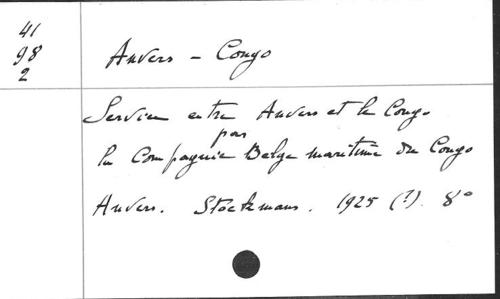 41
98
2
Anvers - Congo
Service entre Anvers et le Congo
par
la Compagnie Belge maritime du Congo
Anvers. Stockmans. 1925 (?). 8°